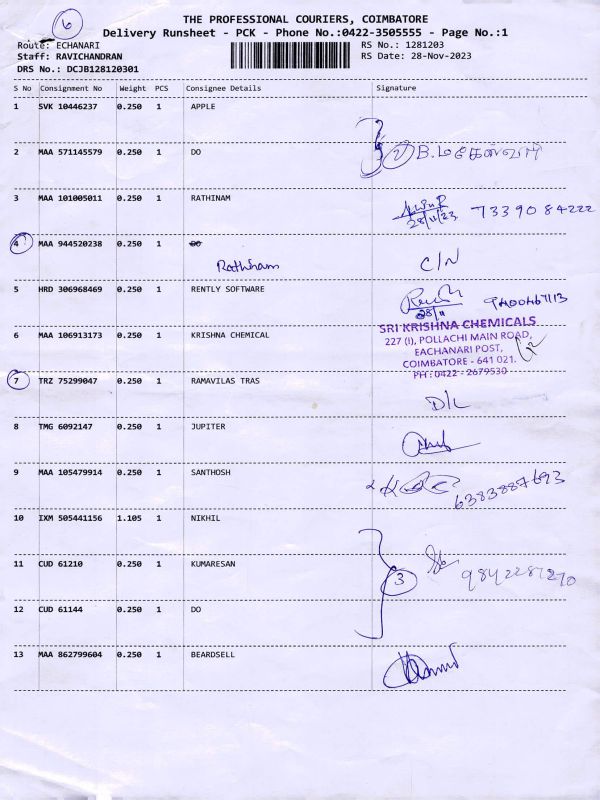 6
THE PROFESSIONAL COURIERS, COIMBATORE
Delivery Runsheet - PCK - Phone No.:0422-3505555 - Page No.:1
Route: ECHANARI
RS No.: 1281203
Staff: RAVICHANDRAN
RS Date: 28-Nov-2023
DRS No.: DCJB128120301
S No Consignment No Weight PCS Consignee Details Signature
1 SVK 10446237 0.250 1 APPLE
2 MAA 571145579 0.250 1 DO 2 B.மகேஸ்வரி
3 MAA 101005011 0.250 1 RATHINAM 28/11/23 7339084222
4 MAA 944520238 0.250 1 DO
Rathinam C/N
5 HRD 306968469 0.250 1 RENTLY SOFTWARE 28/11
6 MAA 106913173 0.250 1 KRISHNA CHEMICAL
SRI KRISHNA CHEMICALS
227 (I), POLLACHI MAIN ROAD,
EACHANARI POST,
COIMBATORE - 641 021.
PH : 0422 - 2679530
7 TRZ 75299047 0.250 1 RAMAVILAS TRAS D/L
8 TMG 6092147 0.250 1 JUPITER
9 MAA 105479914 0.250 1 SANTHOSH 6383887693
10 IXM 505441156 1.105 1 NIKHIL
11 CUD 61210 0.250 1 KUMARESAN 3 9842287270
12 CUD 61144 0.250 1 DO
13 MAA 862799604 0.250 1 BEARDSELL